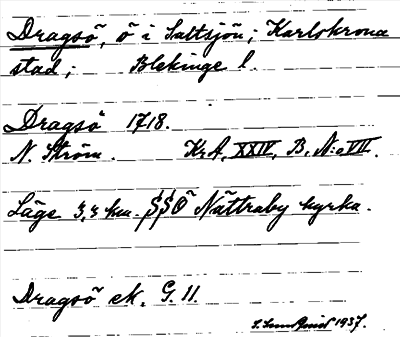 Dragsö, ö i Saltsjön; Karlskrona
stad; Blekinge l.
Dragsö 1718.
N. Ström. Kr. A. XXIV, B. N:o VII.
Läge 3,3 km. SSÖ Nättraby kyrka.
Dragsö ek. G. 11.
1937.